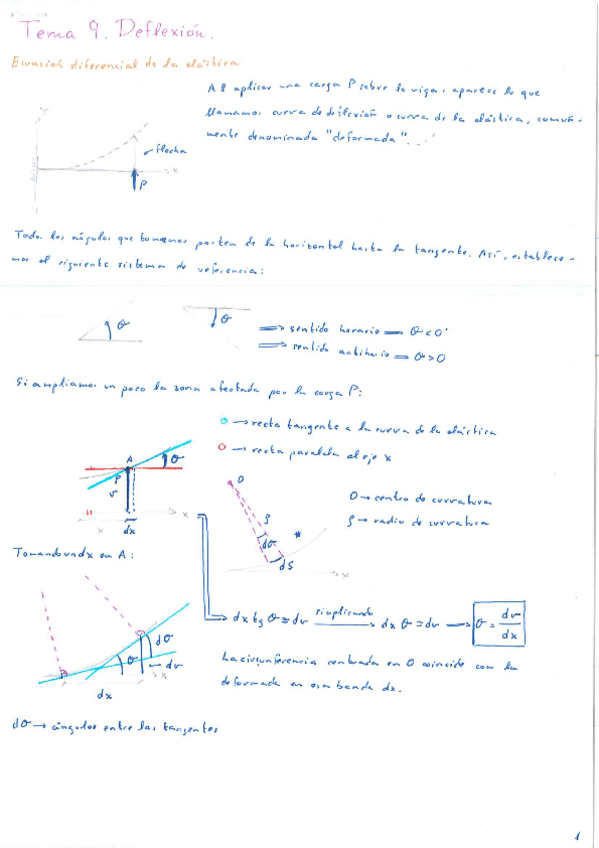 Tema 9. Deflexión.
Ecuación diferencial de la elástica
Al aplicar una carga P sobre la viga, aparece lo que
llamamos curva de deflexión o curva de la elástica, común-
mente denominada "deformada".
y
flecha
x
P
Todo los ángulos que tomemos parten de la horizontal hasta la tangente. Así, establece-
mos el siguiente sistema de referencia:
θ
θ
⇒ sentido horario ⇒ θ < 0
⇒ sentido antihorario ⇒ θ > 0
Si ampliamos un poco la zona afectada por la carga P:
→ recta tangente a la curva de la elástica
→ recta paralela al eje x
A
θ
P
v
x
dx
x
O
ρ
dθ
*
ds
x
O → centro de curvatura
ρ → radio de curvatura
Tomando un dx en A:
dx tg θ = dv simplificando → dx θ = dv → θ = dv/dx
dθ
θ
dv
dx
x
La circunferencia centrada en O coincide con la
deformada en esa banda dx.
dθ → ángulos entre las tangentes
1